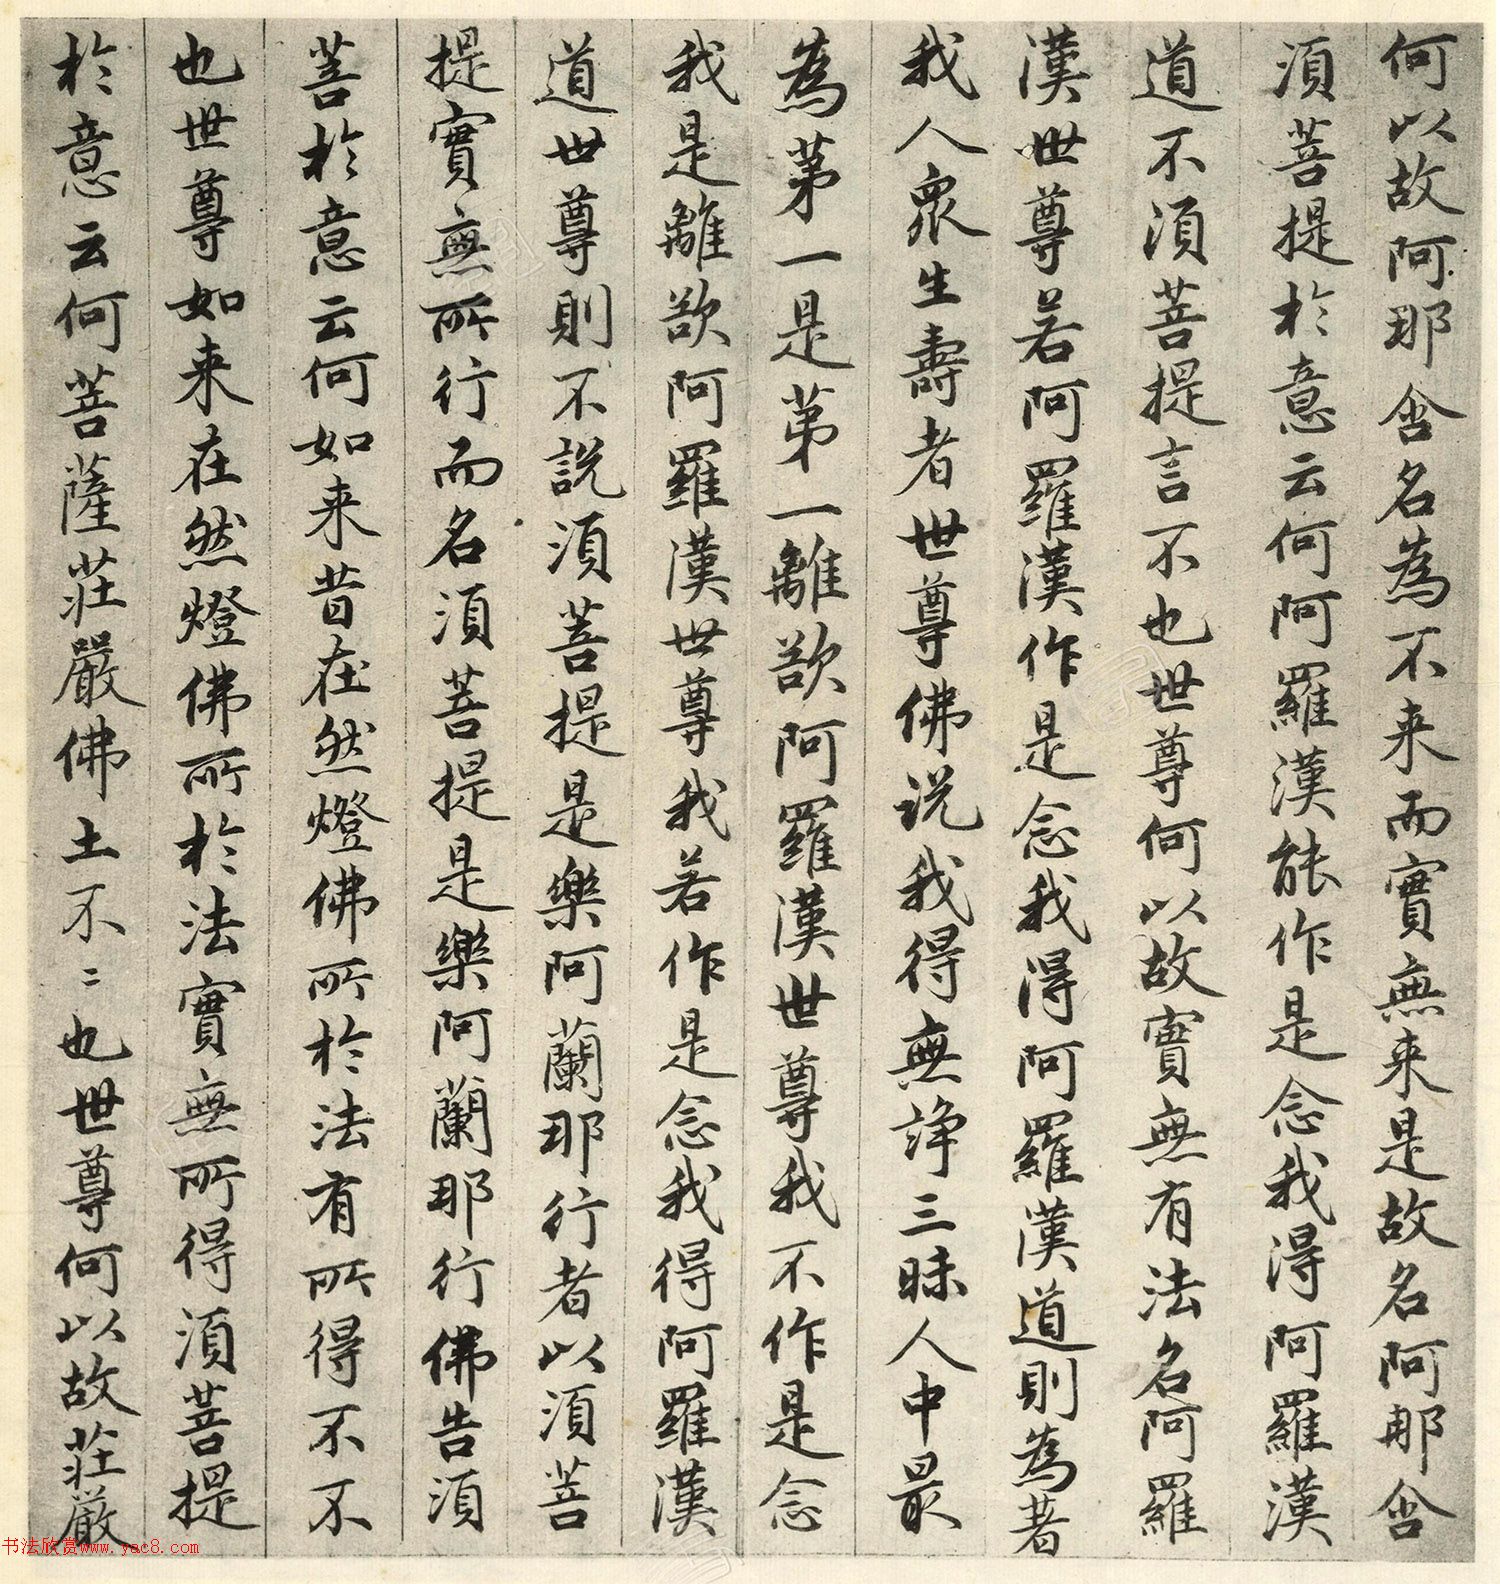 何以故阿那含名為不来而實無来是故名阿那含
須菩提於意云何阿羅漢能作是念我得阿羅漢
道不須菩提言不也世尊何以故實無有法名阿羅
漢世尊若阿羅漢作是念我得阿羅漢道則為著
我人眾生壽者世尊佛說我得無諍三昧人中最
為第一是第一離欲阿羅漢世尊我不作是念
我是離欲阿羅漢世尊我若作是念我得阿羅漢
道世尊則不說須菩提是樂阿蘭那行者以須菩
提實無所行而名須菩提是樂阿蘭那行佛告須
菩於意云何如来昔在然燈佛所於法有所得不不
也世尊如来在然燈佛所於法實無所得須菩提
於意云何菩薩莊嚴佛土不〻也世尊何以故莊嚴
书法欣赏www.yac8.com